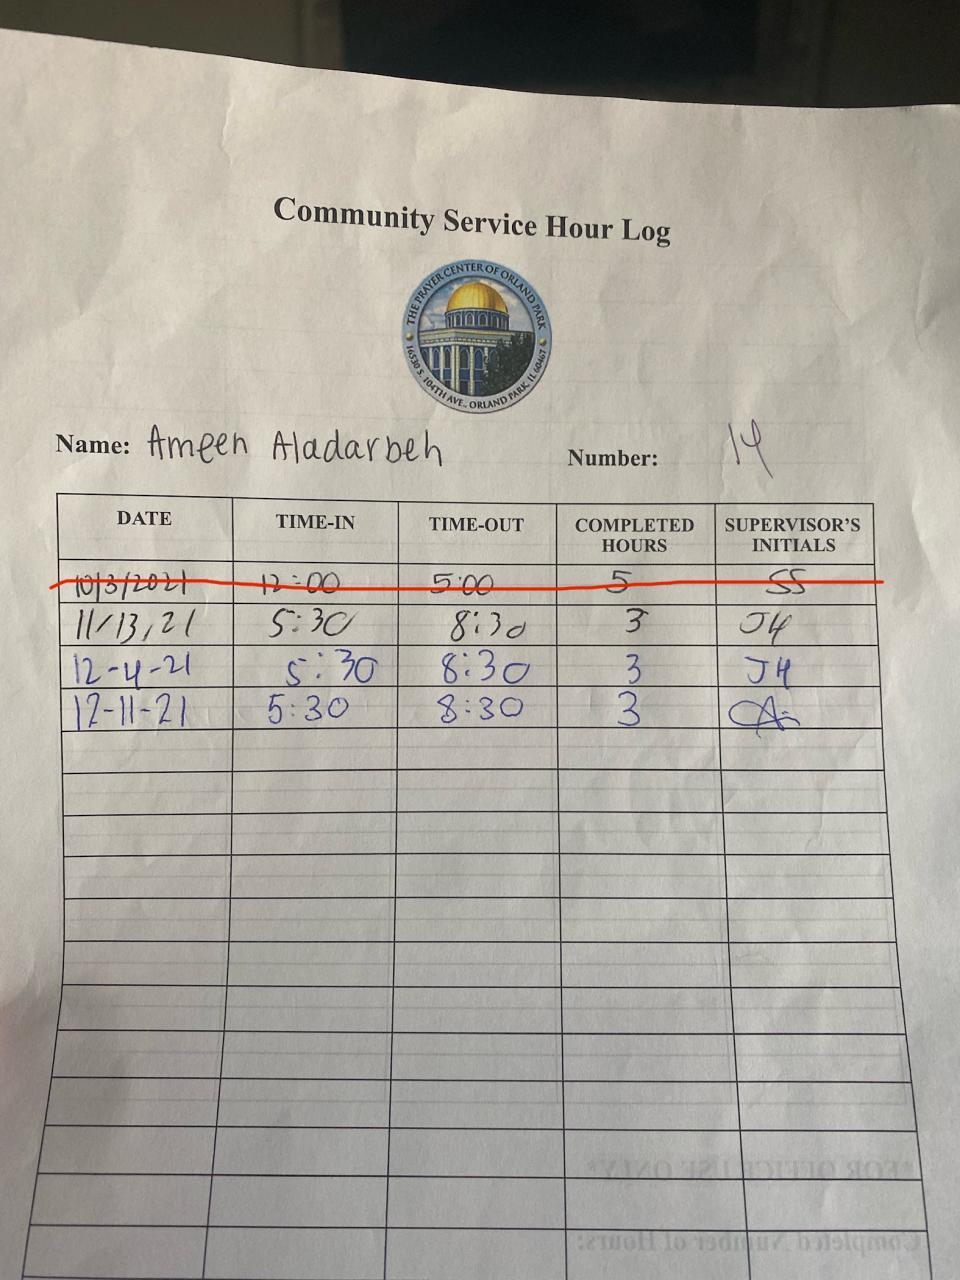 Community Service Hour Log
THE PRAYER CENTER OF ORLAND PARK
16530 S. 104TH AVE., ORLAND PARK, IL 60467
Name: Ameen Aladarbeh Number: 14
DATE TIME-IN TIME-OUT COMPLETED HOURS SUPERVISOR'S INITIALS
10/3/2021 12:00 5:00 5 SS
11/13,21 5:30 8:30 3 JH
12-4-21 5:30 8:30 3 JH
12-11-21 5:30 8:30 3
*FOR OFFICE USE ONLY*
Completed Number of Hours: